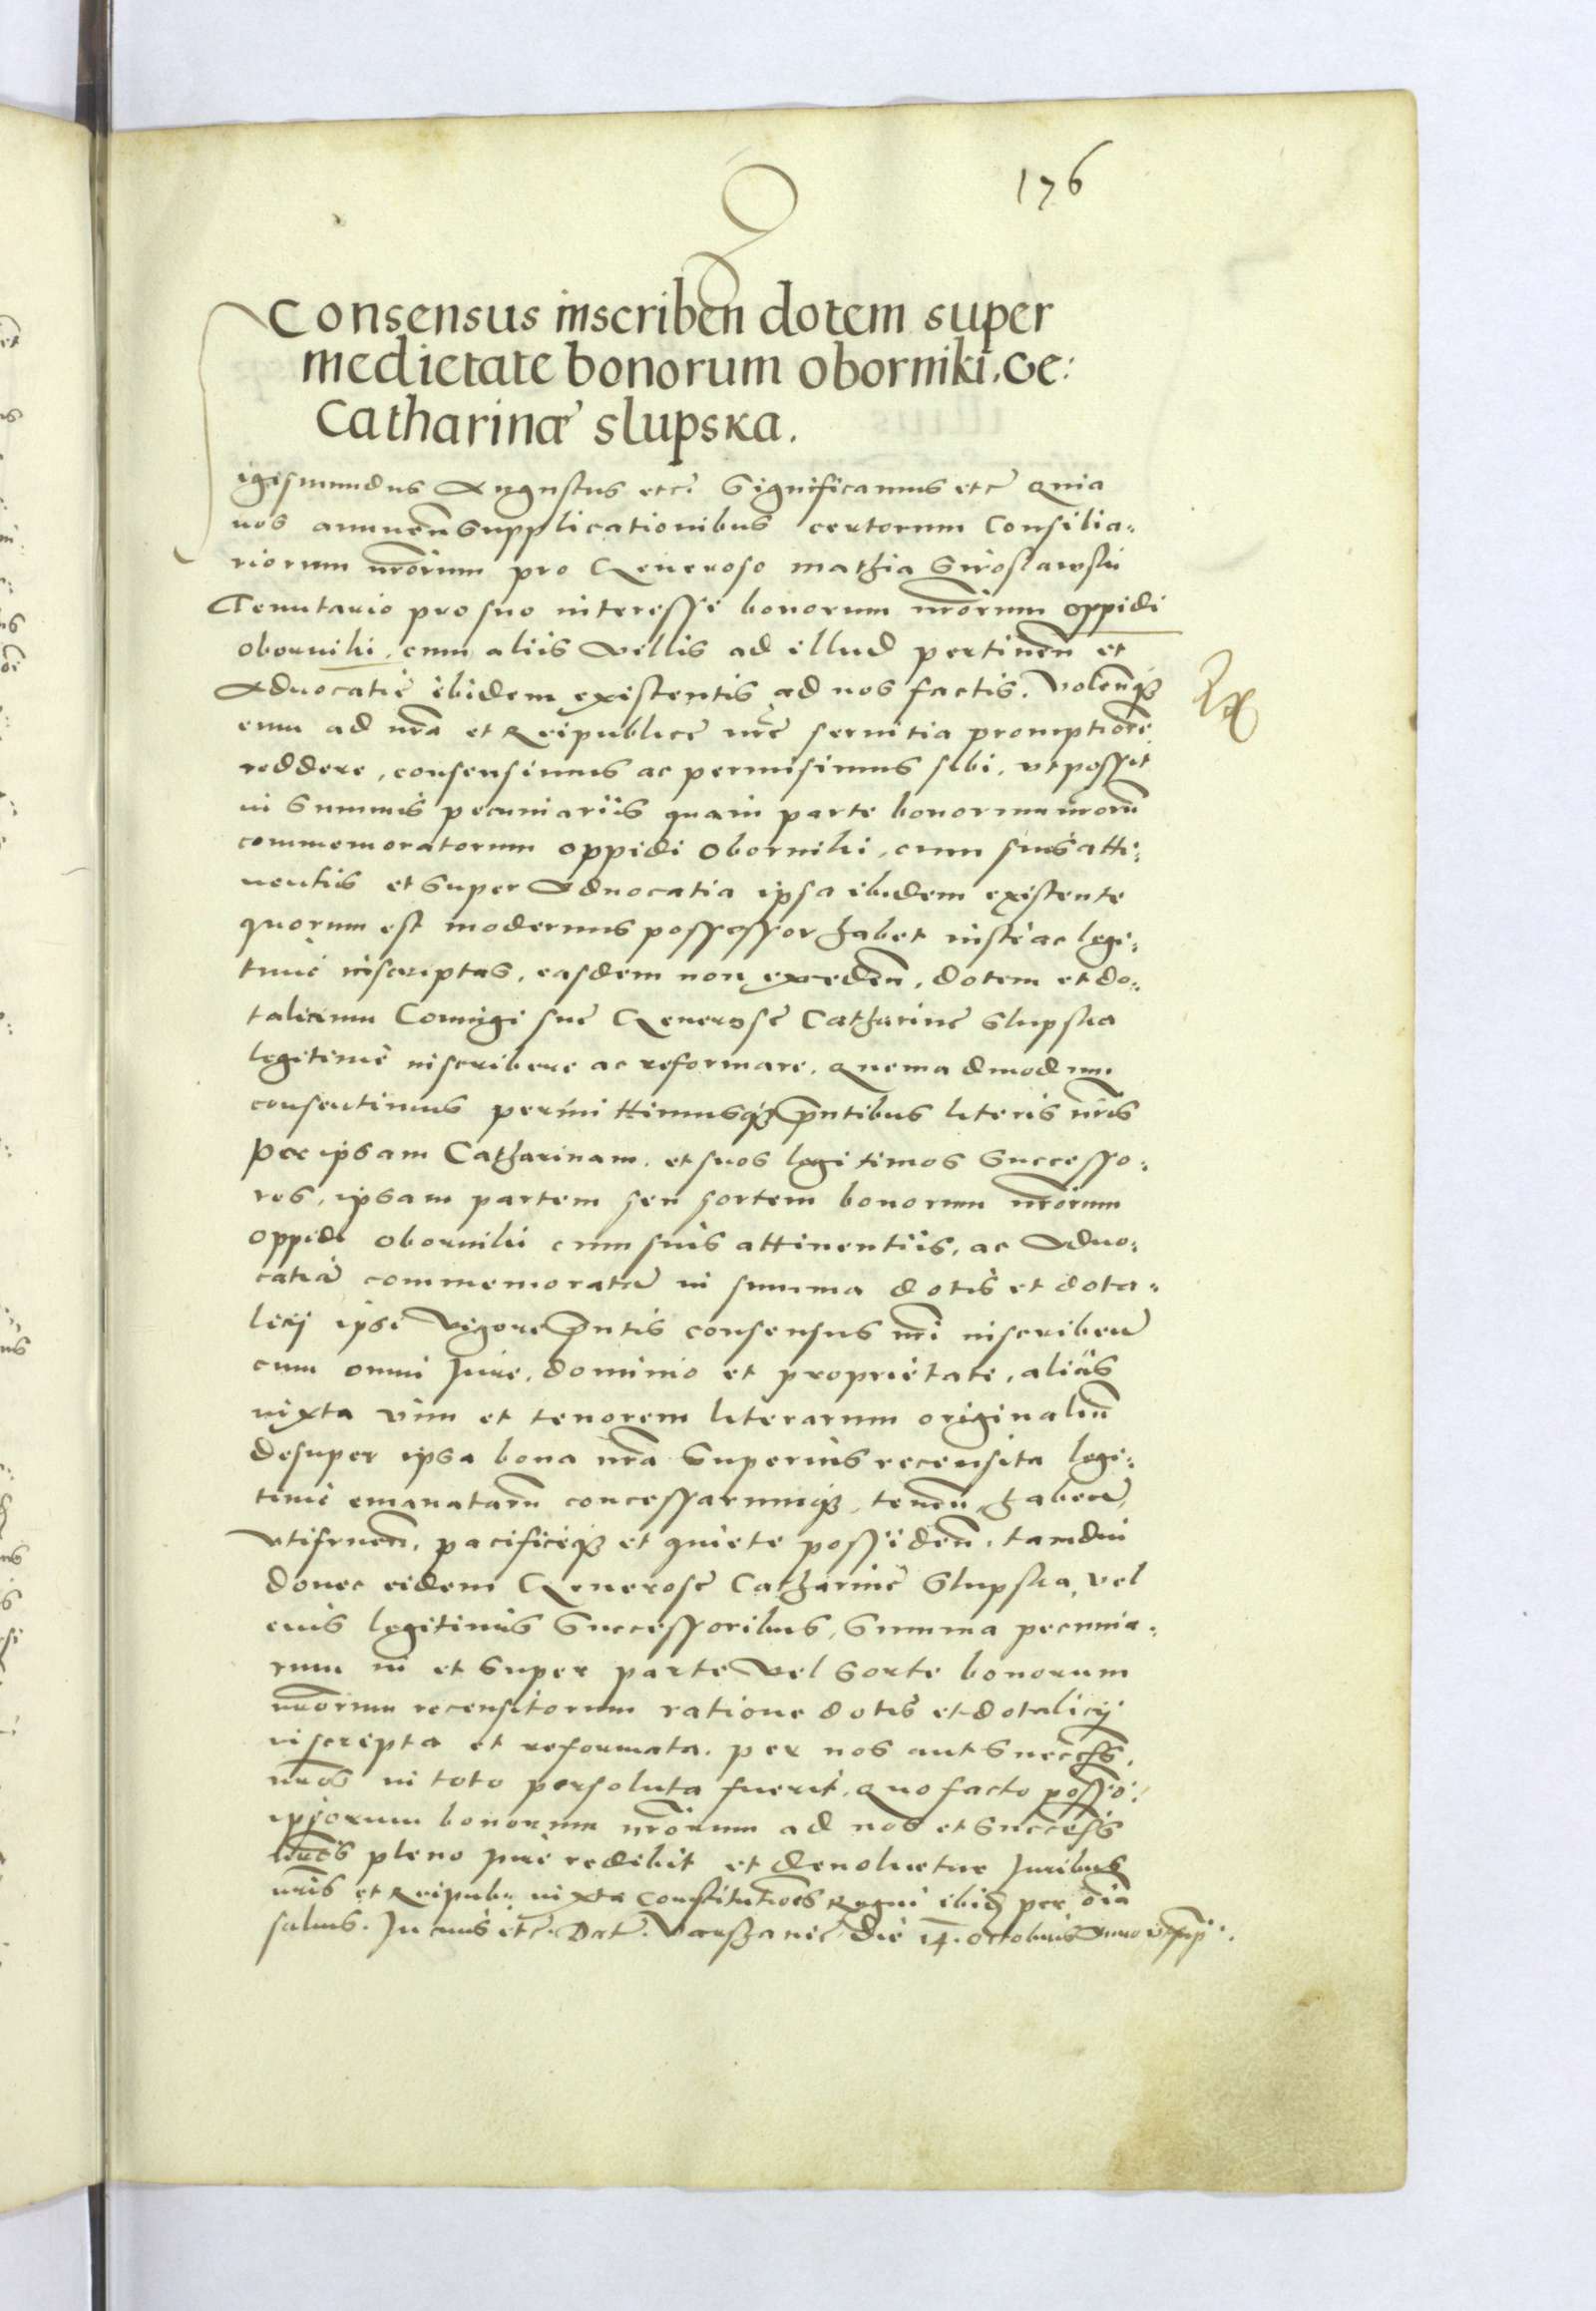 176
Consensus inscriben dotem super
medietate bonorum oborniki. Ge:
Catharinæ slupska.
igismundus Augustus etc. Significamus etc Quia
nos annuen supplicationibus certorum Consilia-
riorum nrorum pro Generoso mathia Siroslawski
Tenutario pro suo interesse bonorum nrorum oppidi
oborniki, cum aliis villis ad illud pertinen et
Aduocatie ibidem existentis ad nos factis. Volenq3
eum ad nra et Reipublice nre seruitia promptiorem
reddere, consensimus ac permisimus sibi, vt possit
in Summis pecuniariis quam parte bonorum nrorum
commemoratorum oppidi oborniki, cum suis atti-
nentiis et super Aduocatia ipsa ibidem existente
quorum est modernus possessor habet iuste ac legi-
time inscriptas, easdem non exceden, dotem et do-
talicium Coniugi sue Generose Catharine Slupska
legitime inscribere ac reformare. Quemadmodum
consentimus permittimusq3 pntibus literis nris
Per ipsam Catharinam, et suos legitimos Successo-
res, ipsam partem seu sortem bonorum nrorum
oppidi oborniki cum suis attinentiis, ac Aduo-
catia commemorata in summa dotis et dota-
licij ipsi vigore pntis consensus nri inscriben
cum omni Jure, dominio et proprietate, aliis
iuxta vim et tenorem literarum originalium
desuper ipsa bona nra Superius recensita legi-
time emanatarum concessarumq3, tenen, haben,
vtifruen, pacificeq3 et quiete possiden, tamdiu
donec eidem Generose Catharine Slupska, vel
eius legitimis Successoribus, Summa pecunia-
rum in et super parte vel sorte bonorum
nrorum recensitorum ratione dotis et dotalicij
inscripta et reformata, per nos aut Success.
nros in toto persoluta fuerit. Quo facto possessio
ipsorum bonorum nrorum ad nos et Success
nros pleno Jure redibit et deuoluetur Juribus
nris et Reipub. iuxta Constitutiones Regni ibid per oia
saluis. In cuius etc. Dat. Varschauie die 14. octobris Anno vt sup.